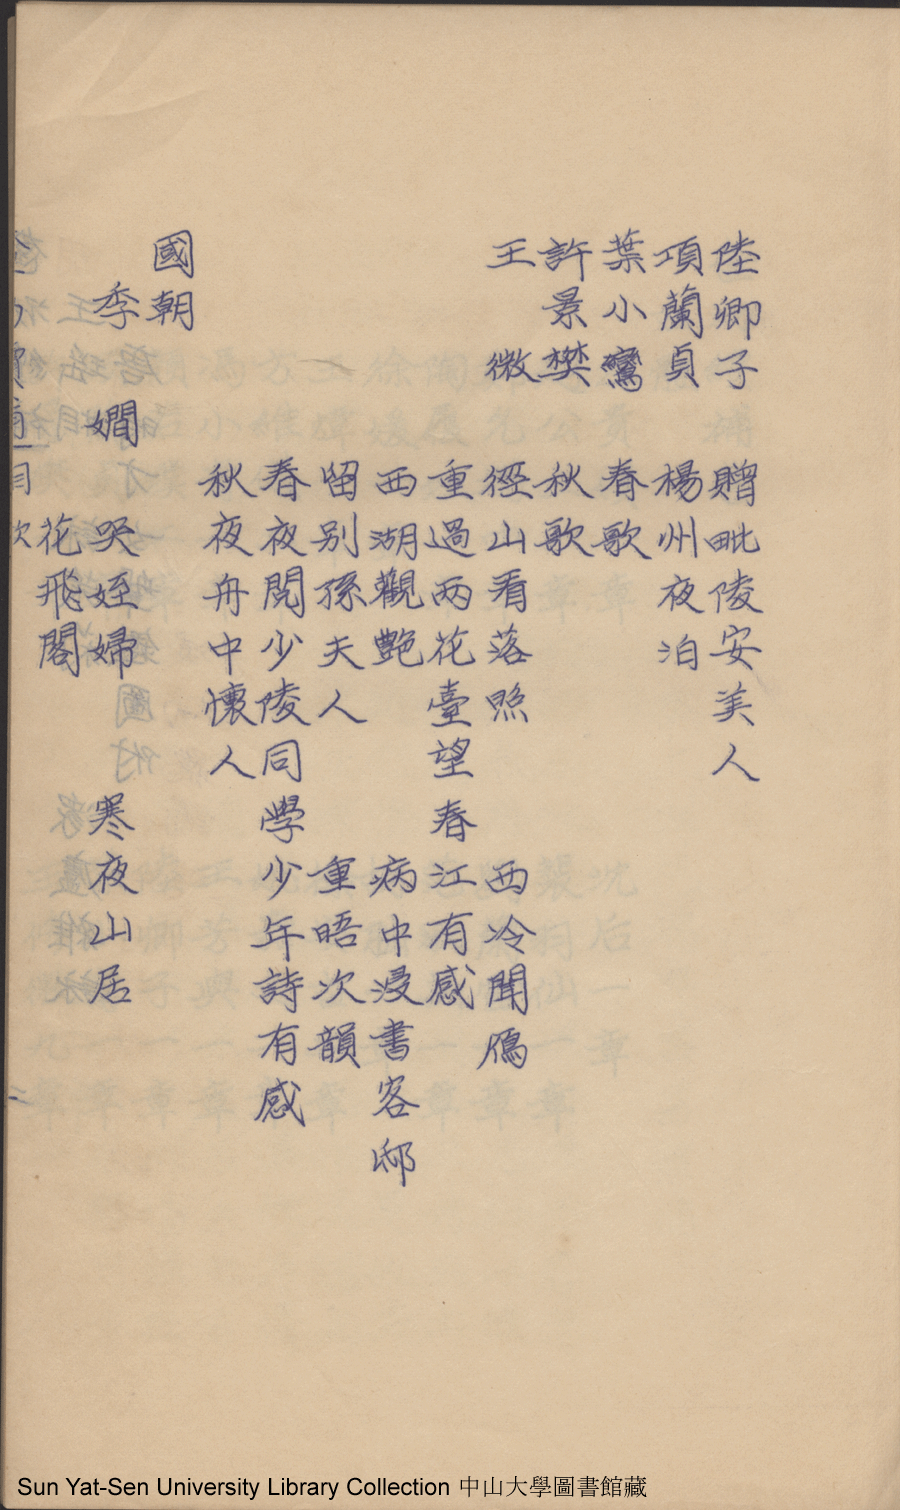 陸卿子 贈毗陵安美人
項蘭貞 楊州夜泊
葉小鸞 春歌
許景樊 秋歌
王 微 徑山看落照 西冷聞鴈
重過兩花臺望春江有感
西湖觀艷 病中浸書客邸
留别孫夫人 重晤次韻
春夜閱少陵同學少年詩有感
秋夜舟中懷人
國朝
季嫺 哭姪婦 寒夜山居
花飛閣
目次
Sun Yat-Sen University Library Collection 中山大學圖書館藏